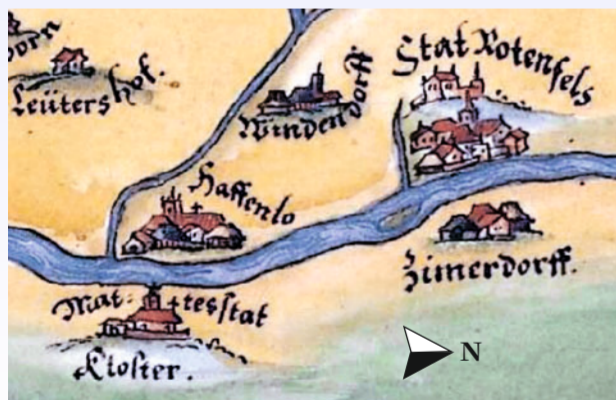 Leüters hof.
Windendorff
Stat Rotenfels
Haffenlo
Zimerdorff.
Mattesstat
Kloster.
N